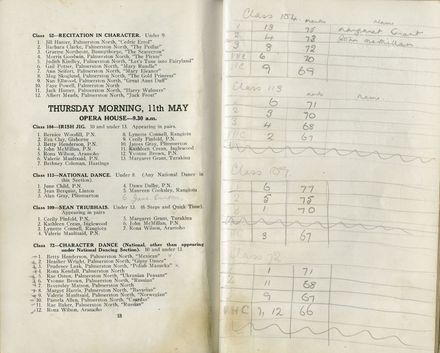 Class 52—RECITATION IN CHARACTER. Under 9.
1 Jill Hunter, Palmerston North, "Cedric Errol"
2 Barbara Clarke, Palmerston North, "The Pedlar"
3 Graeme Nordbest, Bunnythorpe, "The Scarecrow"
4 Morris Goodwin, Palmerston North, "The Pirate"
5 Judith Kindley, Palmerston North, "Let's Tune into Fairyland"
6 Gail Potter, Palmerston North, "Mary Rundle"
7 Ann Seifert, Palmerston North, "Mary Eleanor"
8 Meg Skoglund, Palmerston North, "The Gold Princess"
9 Nan Ellwood, Palmerston North, "Great Aunt Doll"
10 Faye Powell, Palmerston North
11 Jack Horner, Palmerston North, "Harry Walmers"
12 Albert Heads, Palmerston North, "Jack Frost"
THURSDAY MORNING, 11th MAY
OPERA HOUSE—9.30 a.m.
Class 104—IRISH JIG. 10 and under 13. Appearing in pairs.
1 Bernice Woodill, P.N.
2 Eva Clay, Gisborne
3 Betty Henderson, P.N.
4 John McMillan, P.N.
5 Rona Wilson, Aramoho
6 Valerie Maultsaid, P.N.
7 Bethney Coleman, Hastings
8 Lynnette Connell, Rangiotu
9 Cecily Pinfold, P.N.
10 James Gray, Plimmerton
11 Kathleen Crean, Inglewood
12 Yvonne Brown, P.N.
13 Margaret Grant, Turakina
Class 113—NATIONAL DANCE. Under 8. (Any National Dance in this Section).
1 June Child, P.N.
2 Jean Berquist, Linton
3 Alan Gray, Plimmerton
4 Dawn Dalby, P.N.
5 Maureen Cooksley, Rangiotu
6 June
Class 109—SEAN TRIUBHAIS. Under 12. (6 Steps and Quick Time). Appearing in pairs
1 Cecily Pinfold, P.N.
2 Kathleen Crean, Inglewood
3 Lynnette Connell, Rangiotu
4 Valerie Maultsaid, P.N.
5 Margaret Grant, Turakina
6 John McMillan, P.N.
7 Rona Wilson, Aramoho
Class 72—CHARACTER DANCE (National, other than appearing under National Dancing Section). 10 and under 12
1 Betty Henderson, Palmerston North, "Mexican"
2 Heather Wright, Palmerston North, "Gipsy Dance"
3 Prudence Leak, Palmerston North, "Polish Mazurka"
4 Rona Kendall, Palmerston North
5 Rae Osten, Palmerston North, "Ukranian Peasant"
6 Yvonne Brown, Palmerston North, "Russian"
7 Beverley Matson, Palmerston North
8 Margot Harris, Palmerston North, "Bavarian"
9 Valerie Maultsaid, Palmerston North, "Norwegian"
10 Pamela Allen, Palmerston North, "Czardas"
11 Rae Baker, Palmerston North, "Russian"
12 Rona Wilson, Aramoho
23
Class 104 marks Name
1 13 75 Margaret Grant
2 4 73 John McMillan
3 8 72
VHC 6 70
C 9 69
Class 113
marks Name
1 6 71
2 3 70
3 4 68
VHC 2 67
Class 109
6 77
5 75
1 70
3 67
Class 72
1 71
11 68
9 67
VHC 7, 12 66